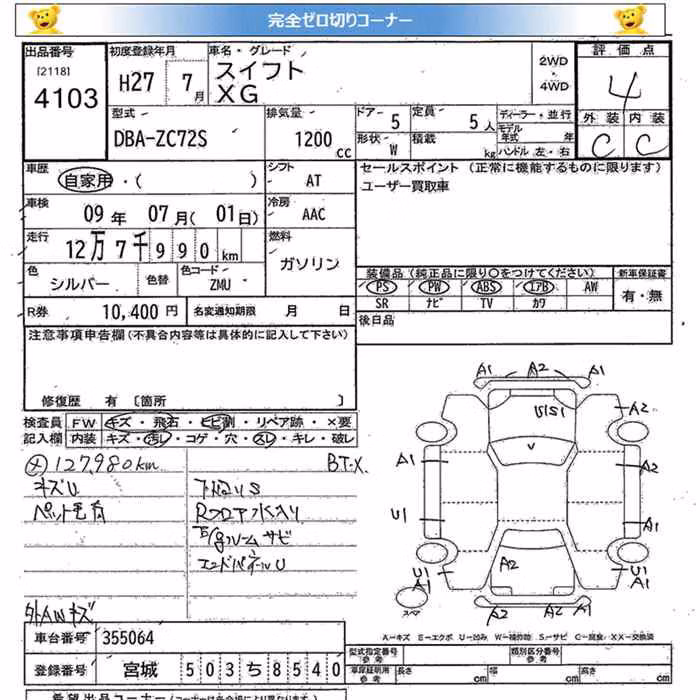 完全ゼロ切りコーナー
出品番号
[2118]
4103
初度登録年月
H27 7月
車名・グレード
スイフト
XG
2WD
・
4WD
評価点
4
外装 内装
C C
型式
DBA-ZC72S
排気量
1200 cc
ドア 5
定員 5人
形状 W
積載 kg
ディーラー・並行
モデル年式 年
ハンドル 左・右
車歴
自家用・( )
シフト
AT
セールスポイント (正常に機能するものに限ります)
ユーザー買取車
車検
09年 07月( 01日)
冷房
AAC
走行
12万7千990km
燃料
ガソリン
色
シルバー
色替
色コード
ZMU
装備品(純正品に限り○をつけてください)
PS PW ABS エアB AW
SR ナビ TV カワ
新車保証書
有・無
R券 10,400円
名変通知期限 月 日
後日品
注意事項申告欄(不具合内容等は具体的に記入して下さい)
修復歴 有 〔箇所 〕
検査員記入欄
FW キズ・飛石・ヒビ割・リペア跡・×要
内装 キズ・汚レ・コゲ・穴・スレ・キレ・破レ
127,980km
BT-X
キズU
ペット毛有
下廻りS
エンドパネルU
外AWキズ
A1 A2 A1
U1S1
A2
A1
A2
U1
A1
A2
U1
A1
U1
A1
スペア
A2 A2 A1
A-キズ E-エクボ U-凹み W-補修跡 S-サビ C-腐食 XX-交換済
車台番号 355064
型式指定番号 参考
類別区分番号 参考
登録番号 宮城 503ち8540
車庫証明用 参考
長さ cm 幅 cm 高さ cm
希望出品コーナー